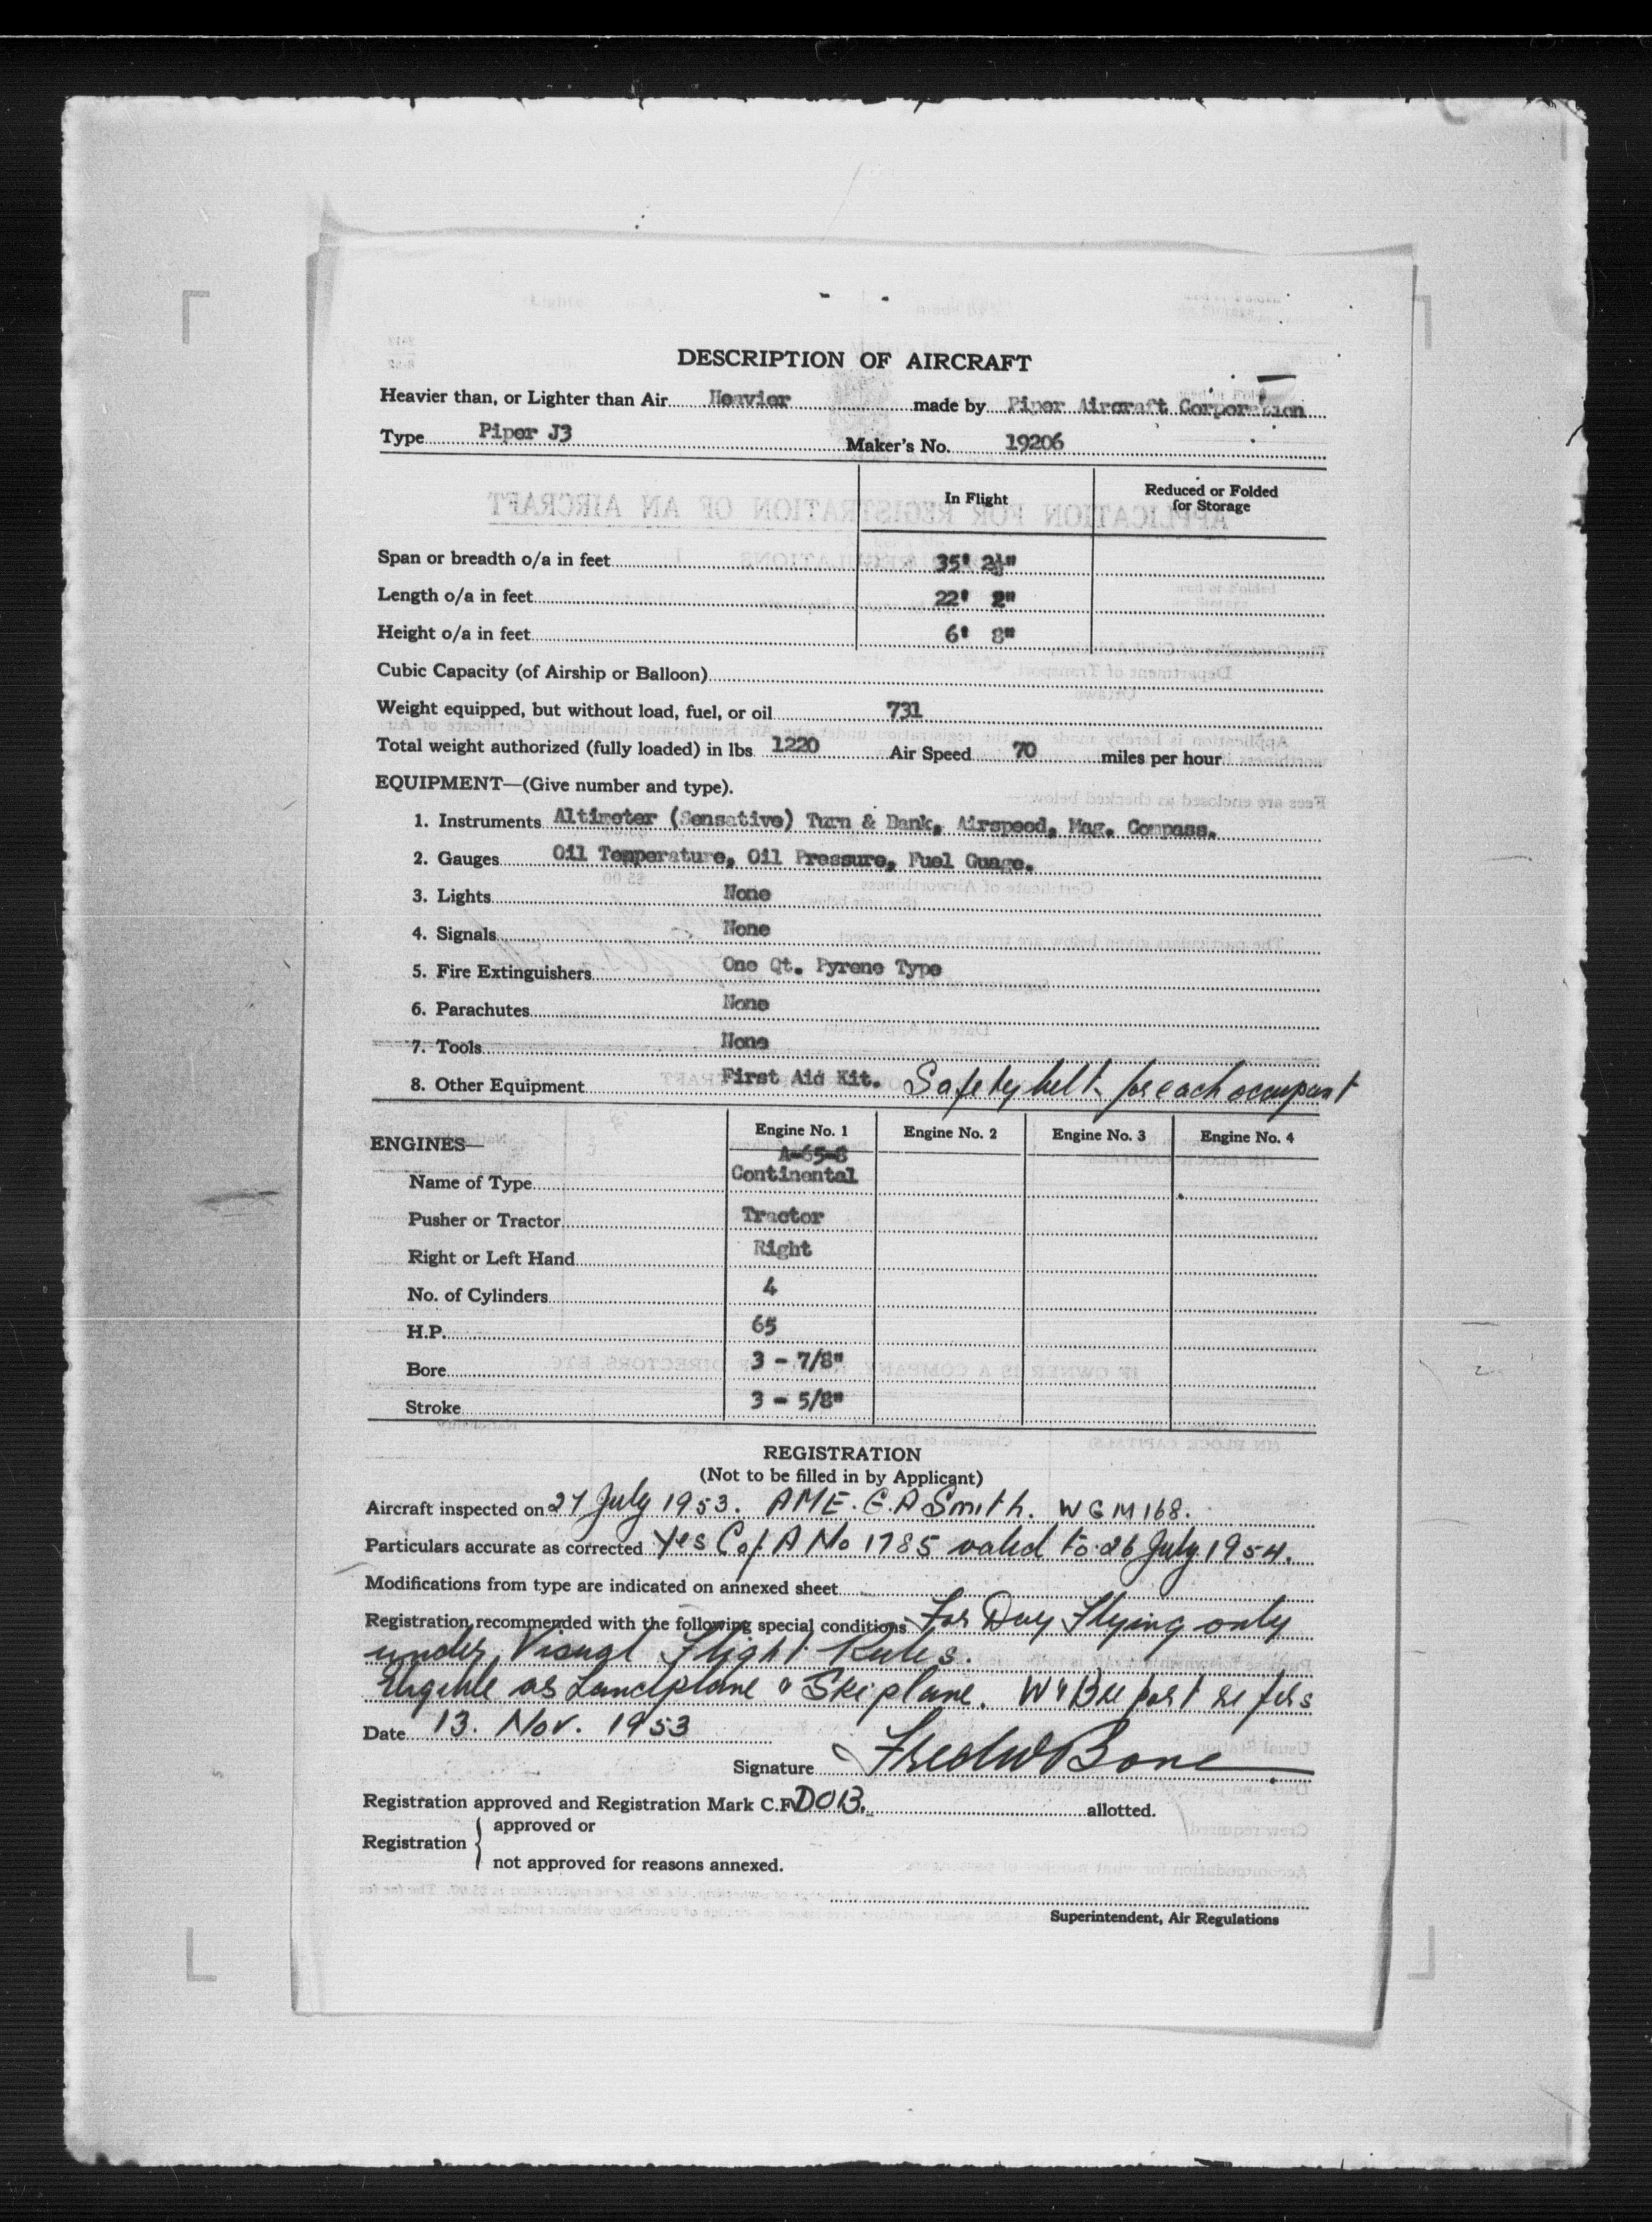 DESCRIPTION OF AIRCRAFT
Heavier than, or Lighter than Air Heavier made by Piper Aircraft Corporation
Type Piper J3 Maker's No. 19206
In Flight Reduced or Folded for Storage
Span or breadth o/a in feet 35' 2½"
Length o/a in feet 22' 2"
Height o/a in feet 6' 8"
Cubic Capacity (of Airship or Balloon)
Weight equipped, but without load, fuel, or oil 731
Total weight authorized (fully loaded) in lbs. 1220 Air Speed 70 miles per hour
EQUIPMENT—(Give number and type).
1. Instruments Altimeter (Sensative) Turn & Bank, Airspeed, Mag. Compass.
2. Gauges Oil Temperature, Oil Pressure, Fuel Guage.
3. Lights None
4. Signals None
5. Fire Extinguishers One Qt. Pyrene Type
6. Parachutes None
7. Tools None
8. Other Equipment First Aid Kit. Safety belt for each occupant
ENGINES— Engine No. 1 Engine No. 2 Engine No. 3 Engine No. 4
A-65-8
Name of Type Continental
Pusher or Tractor Tractor
Right or Left Hand Right
No. of Cylinders 4
H.P. 65
Bore 3 - 7/8"
Stroke 3 - 5/8"
REGISTRATION
(Not to be filled in by Applicant)
Aircraft inspected on 27 July 1953. AME. E.A Smith. WGM168.
Particulars accurate as corrected Yes C of A No 1785 valid to 26 July 1954.
Modifications from type are indicated on annexed sheet
Registration recommended with the following special conditions For Day Flying only
under Visual Flight Rules.
Eligible as Landplane & Skiplane. W&B report refers
Date 13. Nov. 1953
Signature Fred W Bone
Registration approved and Registration Mark C.F. DOB. allotted.
Registration { approved or
not approved for reasons annexed.
Superintendent, Air Regulations